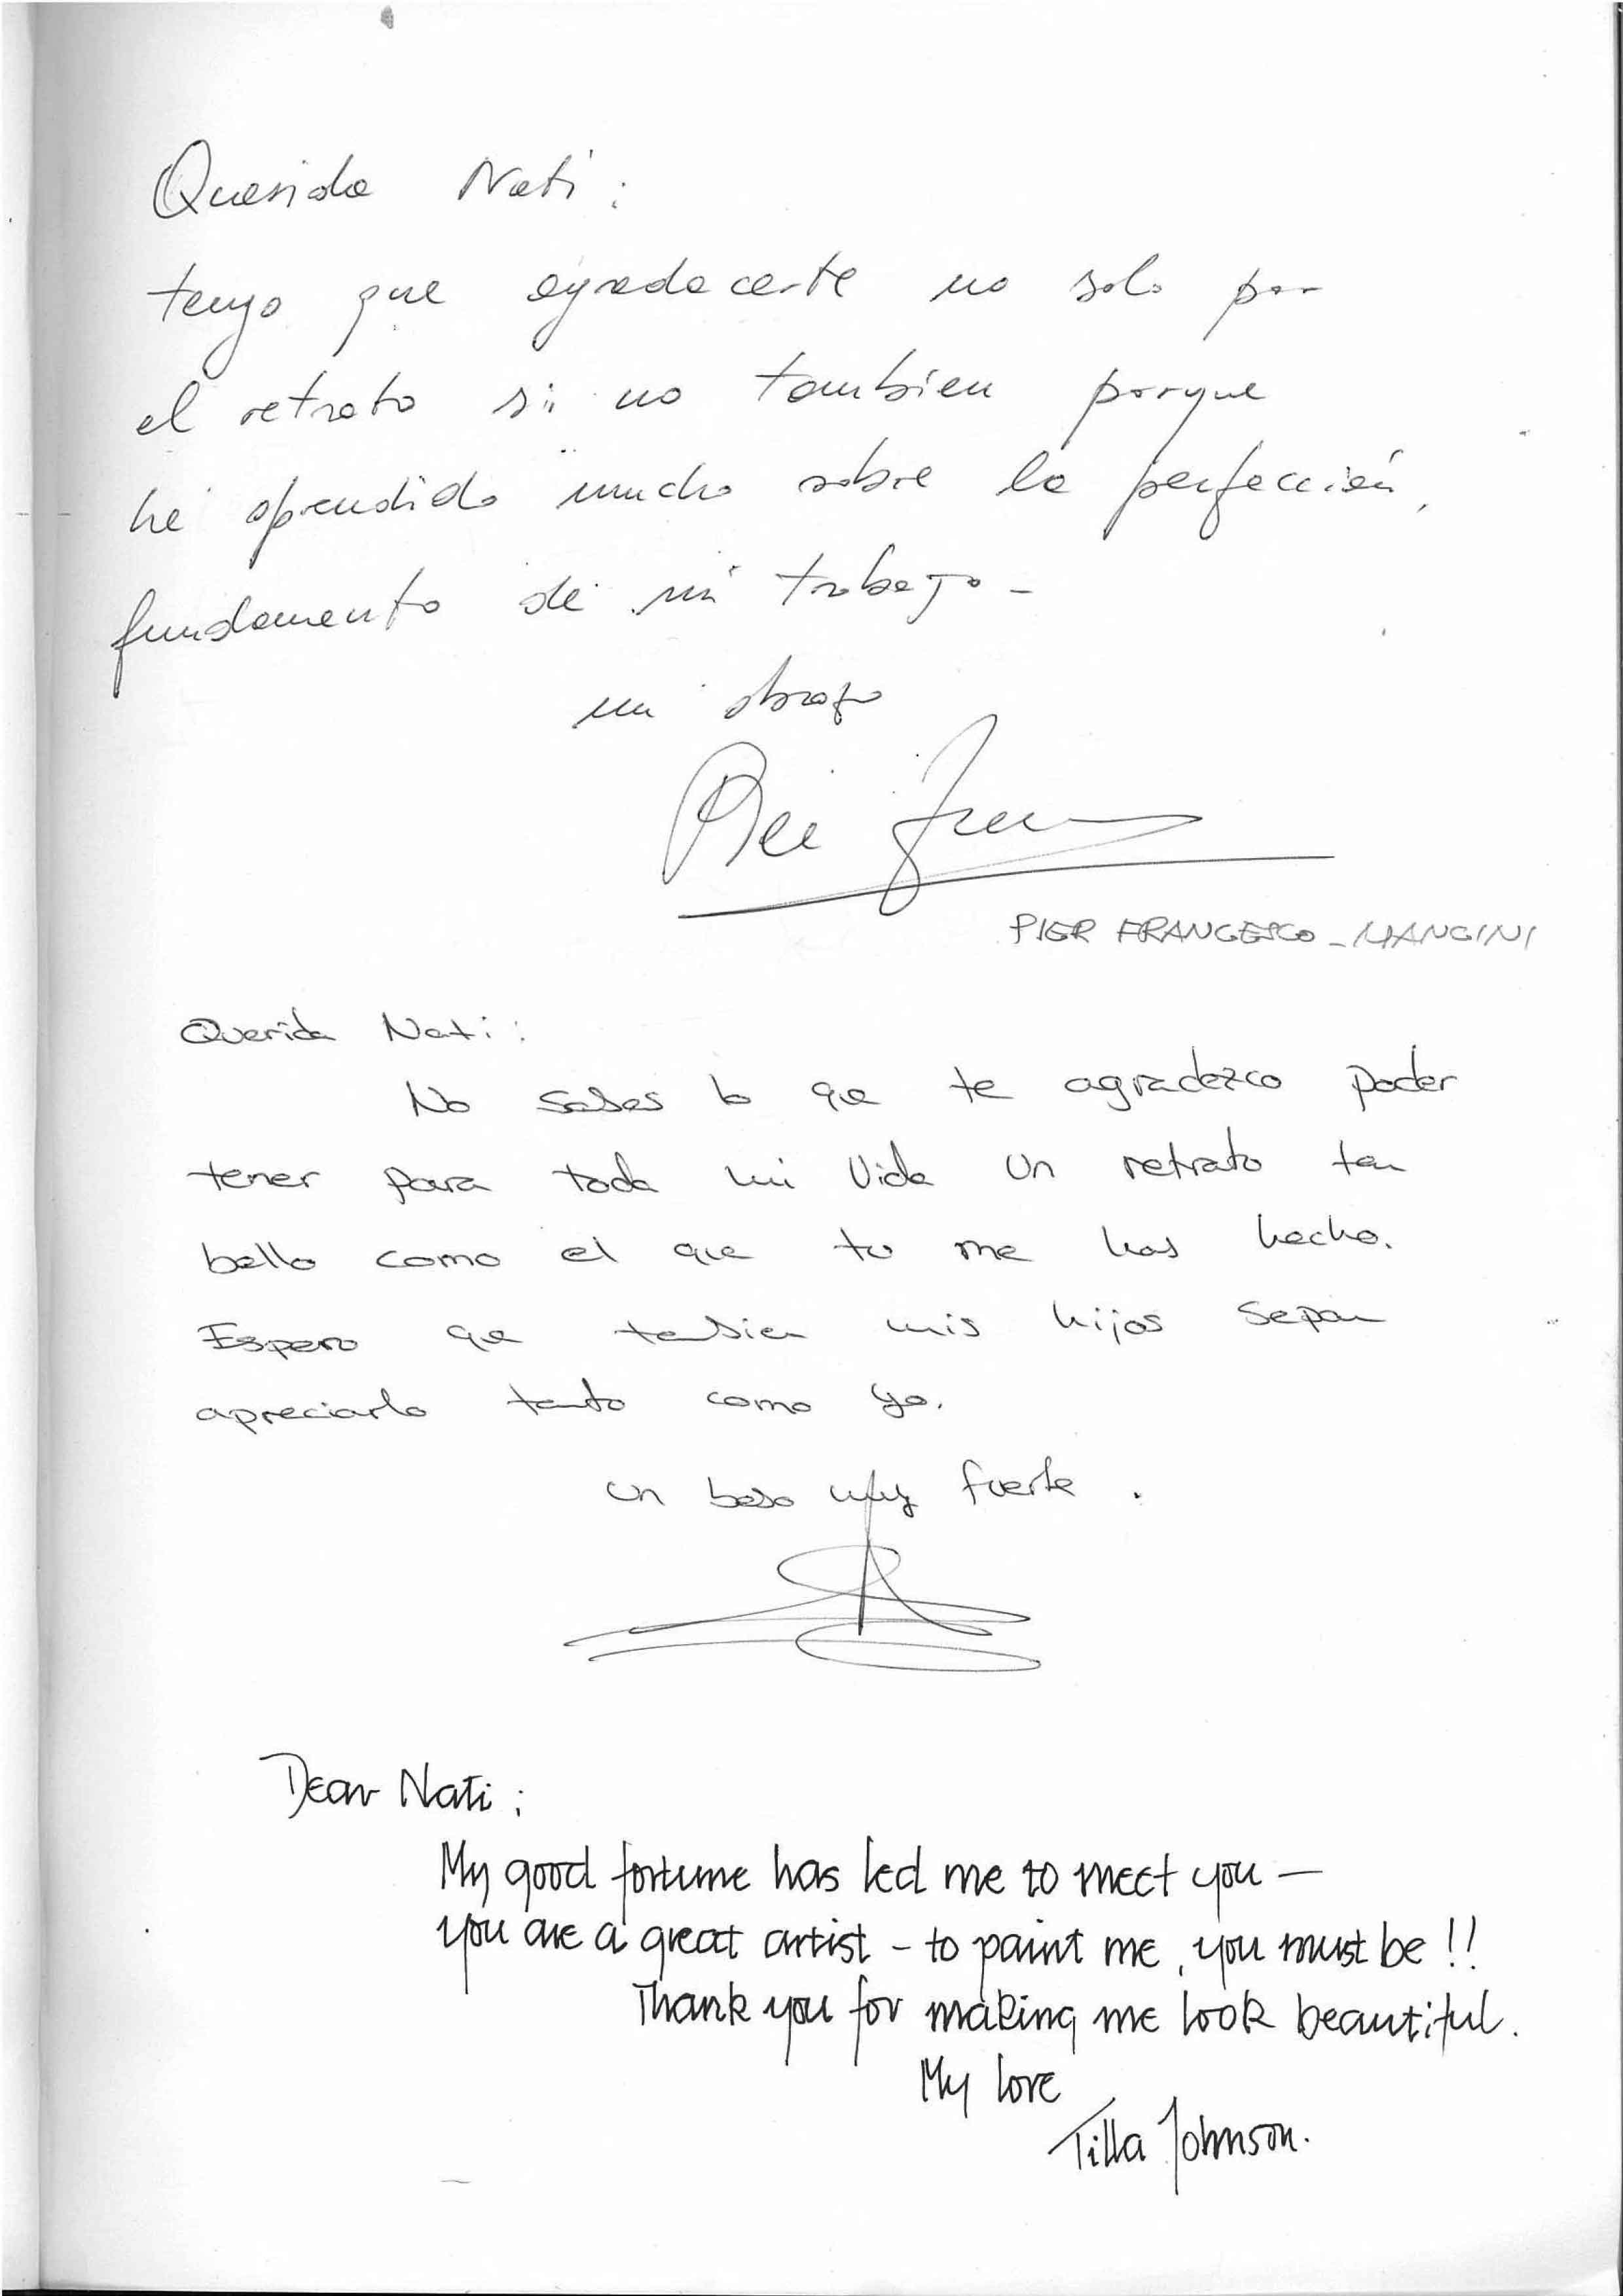 Querida Nati:
tengo que agradecerte no solo por
el retrato si no tambien porque
he aprendido mucho sobre la perfección,
fundamento de mi trabajo-
un abrazo
Pier Fran
PIER FRANCESCO - MANCINI
Querida Nati:
No sabes lo que te agradezco poder
tener para toda mi vida un retrato tan
bello como el que tu me has hecho.
Espero que tambien mis hijos sepan
apreciarlo tanto como yo.
un beso muy fuerte.
Dear Nati:
My good fortune has led me to meet you —
you are a great artist - to paint me, you must be!!
Thank you for making me look beautiful.
My love
Tilla Johnson.